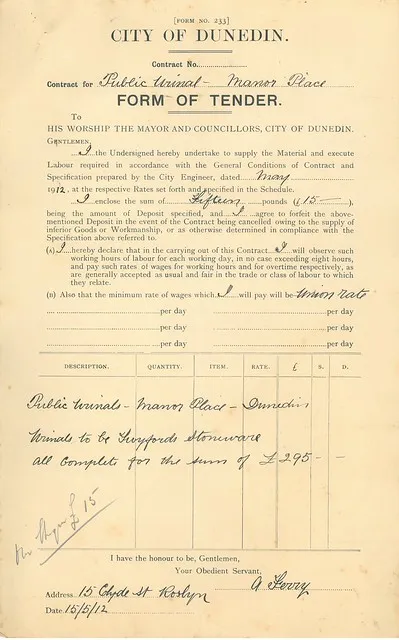 [FORM NO. 233]
CITY OF DUNEDIN.
Contract No.
Contract for Public Urinal - Manor Place
FORM OF TENDER.
To
HIS WORSHIP THE MAYOR AND COUNCILLORS, CITY OF DUNEDIN.
GENTLEMEN,
I the Undersigned hereby undertake to supply the Material and execute
Labour required in accordance with the General Conditions of Contract and
Specification prepared by the City Engineer, dated May
1912, at the respective Rates set forth and specified in the Schedule.
I enclose the sum of Fifteen pounds (£15 - ),
being the amount of Deposit specified, and I agree to forfeit the above-
mentioned Deposit in the event of the Contract being cancelled owing to the supply of
inferior Goods or Workmanship, or as otherwise determined in compliance with the
Specification above referred to.
(A) I hereby declare that in the carrying out of this Contract I will observe such
working hours of labour for each working day, in no case exceeding eight hours,
and pay such rates of wages for working hours and for overtime respectively, as
are generally accepted as usual and fair in the trade or class of labour to which
they relate.
(B) Also that the minimum rate of wages which I will pay will be Union rate
per day per day
per day per day
per day per day
DESCRIPTION. QUANTITY. ITEM. RATE. £ S. D.
Public Urinals - Manor Place - Dunedin
Urinals to be Twyfords Stoneware
all Complete for the sum of £295 - -
£15
I have the honour to be, Gentlemen,
Your Obedient Servant,
A Ferry
Address 15 Clyde St Roslyn
Date 15/5/12